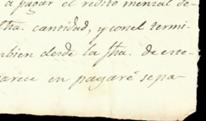 a pagar el redito menzal de-
ſtha. cantidad, y con el termi-
mbien desde la ſtha. de este
parece en pagaré se pa-